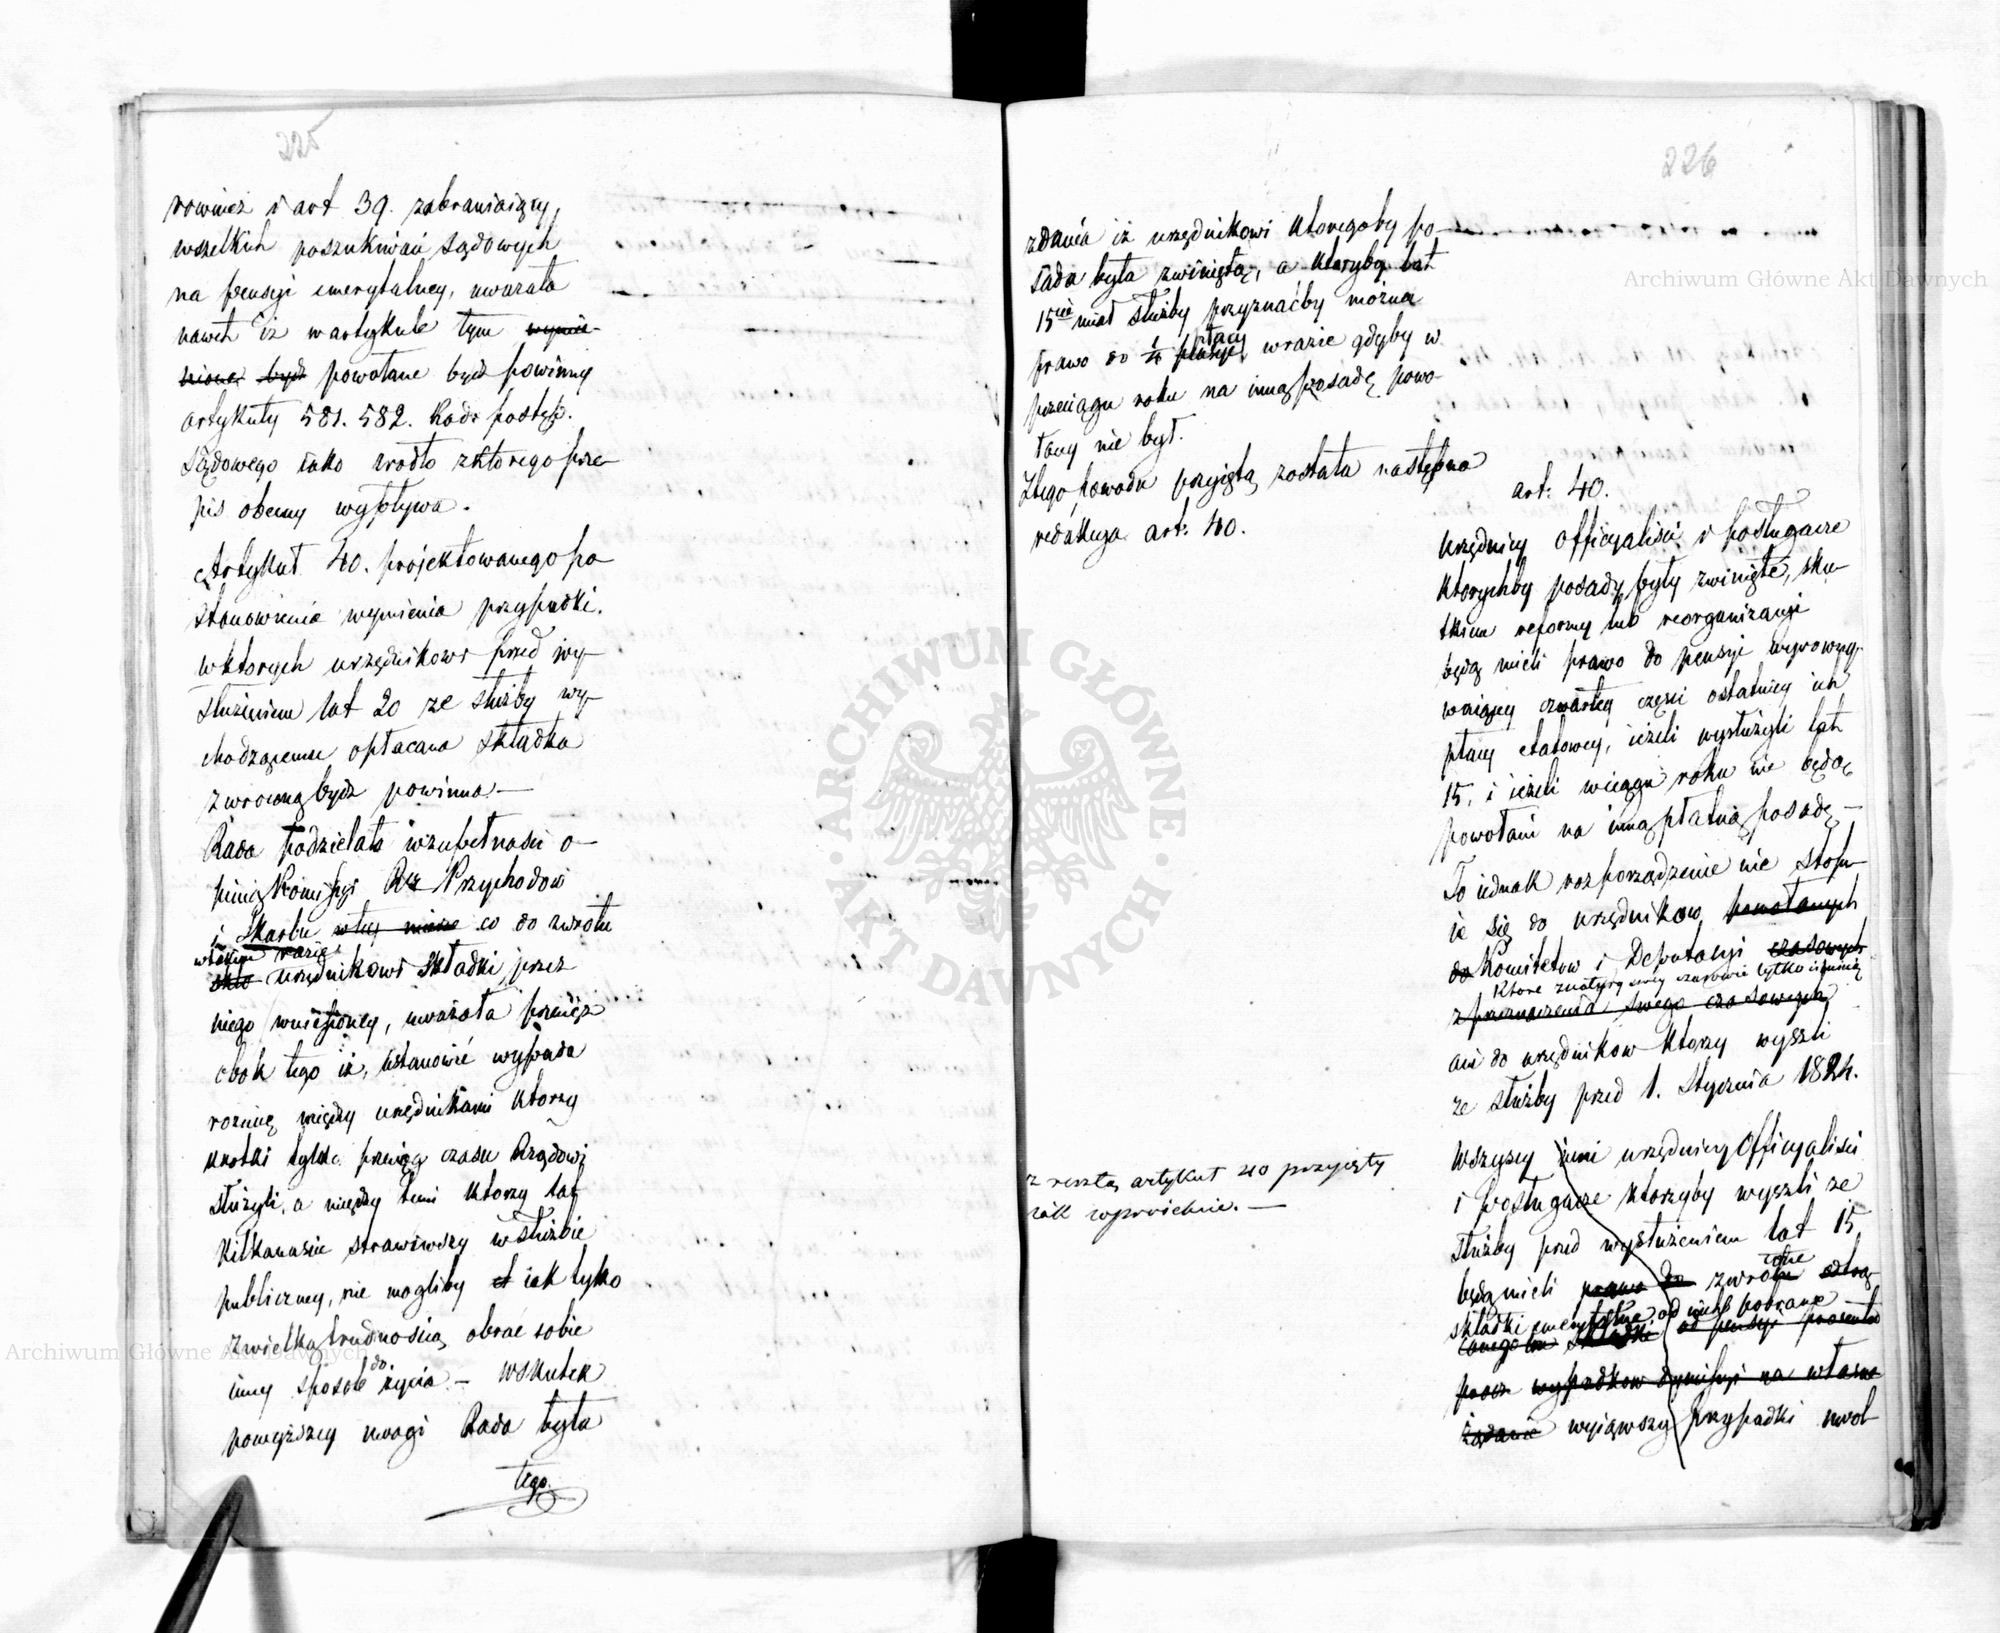 225
rownież i art 39. zabraniaiący
wszelkich poszukiwań Sądowych
na pensyi emerytalney, uważała
nawet iż w artykule tym wymie-
nione bydź powołane bydź powinny
artykuły 581. 582. Kod: postęp.
Sądowego iako źrodło z którego prze-
pis obecny wypływa.
Artykuł 40. projektowanego po-
stanowienia wymienia przypadki.
w ktorych urzędnikowi przed wy-
służeniem lat 20 ze służby wy-
chodzącemu opłacana składka
zwroconą bydź powinna. —
Rada podzielała w zupełności o-
pinią Kommissyi Rz. Przychodow
i Skarbu co do zwrotu
w takim razie
urzędnikowi składki przez
niego wniesioney, uważała przecież
obok tego iż, ustanowić wypada
rożnicę między urzędnikami ktorzy
krotki tylko przeciąg czasu Rządowi
służyli, a między temi ktorzy lat
kilkanaście strawiwszy w służbie
publiczney, nie mogliby iak tylko
z wielką trudnością obrać sobie
inny sposób do życia. — W skutek
powyższey uwagi Rada była
tego
226
zdania iż urzędnikowi ktoregoby po-
sada była zwiniętą, a ktoryby lat
15cie miał służby przyznaćby można
płacy
prawo do ¼ pensyi, w razie gdyby w
przeciągu roku na inną posadę powo-
łany nie był.
Z tego powodu przyiętą została następna
redakcya art: 40.
z resztą artykuł 40 przyięty
iak w proiekcie. —
art: 40.
Urzędnicy Officyaliści i posługacze
ktorychby posady były zwinięte, sku-
tkiem reformy lub reorganizacyi
będą mieli prawo do pensyi wyrowny-
waiącey czwartey części ostatniey ich
płacy etatowey, ieżeli wysłużyli lat
15, i ieżeli w ciągu roku nie będą
powołani na inną płatną posadę —
To iednak rozporządzenie nie stosu-
ie się do urzędnikow powołanych
do Komitetow i Deputacyi czasowych
ktore z natury swey czasowie tylko istnieią
z przeznaczenia swego czasowych
ani do urzędnikow ktorzy wyszli
ze służby przed 1. Stycznia 1824.
Wszyscy inni urzędnicy Officyaliści
i posługacze ktorzyby wyszli ze
służby przed wysłużeniem lat 15
będą mieli prawo do zwrotu
cone
składki emerytalne od nich pobrane
składki od pensyi procentu
procz wypadkow dymissyi na własne
żądanie wyiąwszy przypadki uwol-